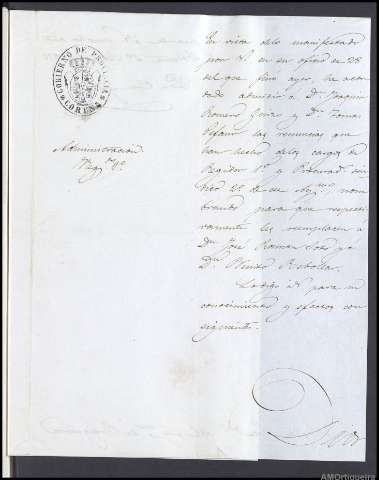 GOBIERNO DE PROVINCIA
CORUÑA
Administracion
Neg.º 6.º
En vista de lo manifestado
por V. en su oficio de 28
del que fino ayer, he acor
dado admitir a D. Joaquin
Romero y D. Tomas
las renuncias que
han hecho de los cargos de
Regidor 1.º y Procurad. sin
dico 2.º de ese Ay.mto, nom
brando para que respecti
vamente les remplacen a
D. José Ramon Soto y a
D. Benito Rebollar.
Lo digo a V. para su
conocimiento y efectos con
siguientes.
AMOrtigueira